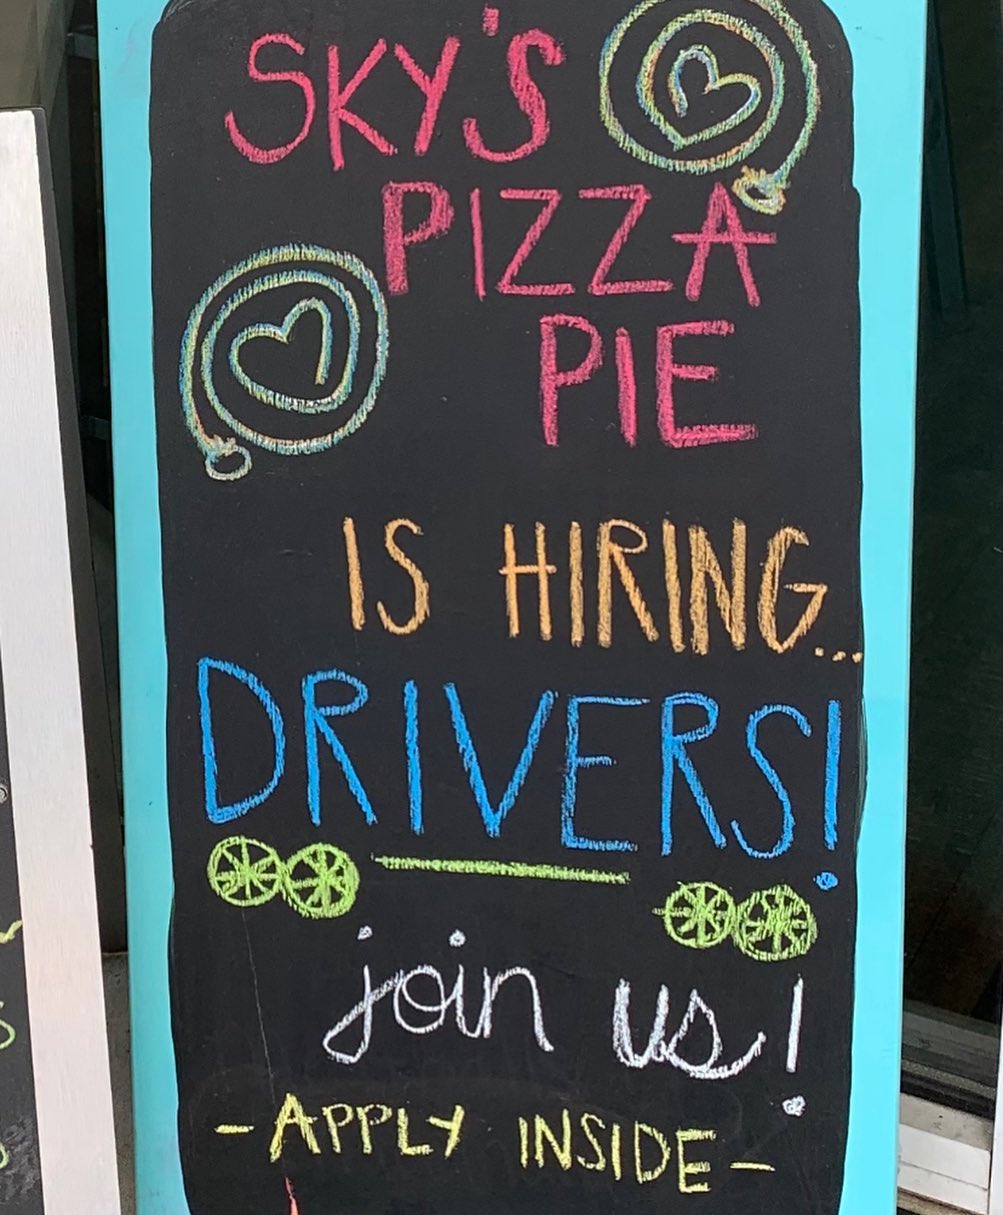 SKY'S
PIZZA
PIE
IS HIRING...
DRIVERS!
join us!
-APPLY INSIDE-